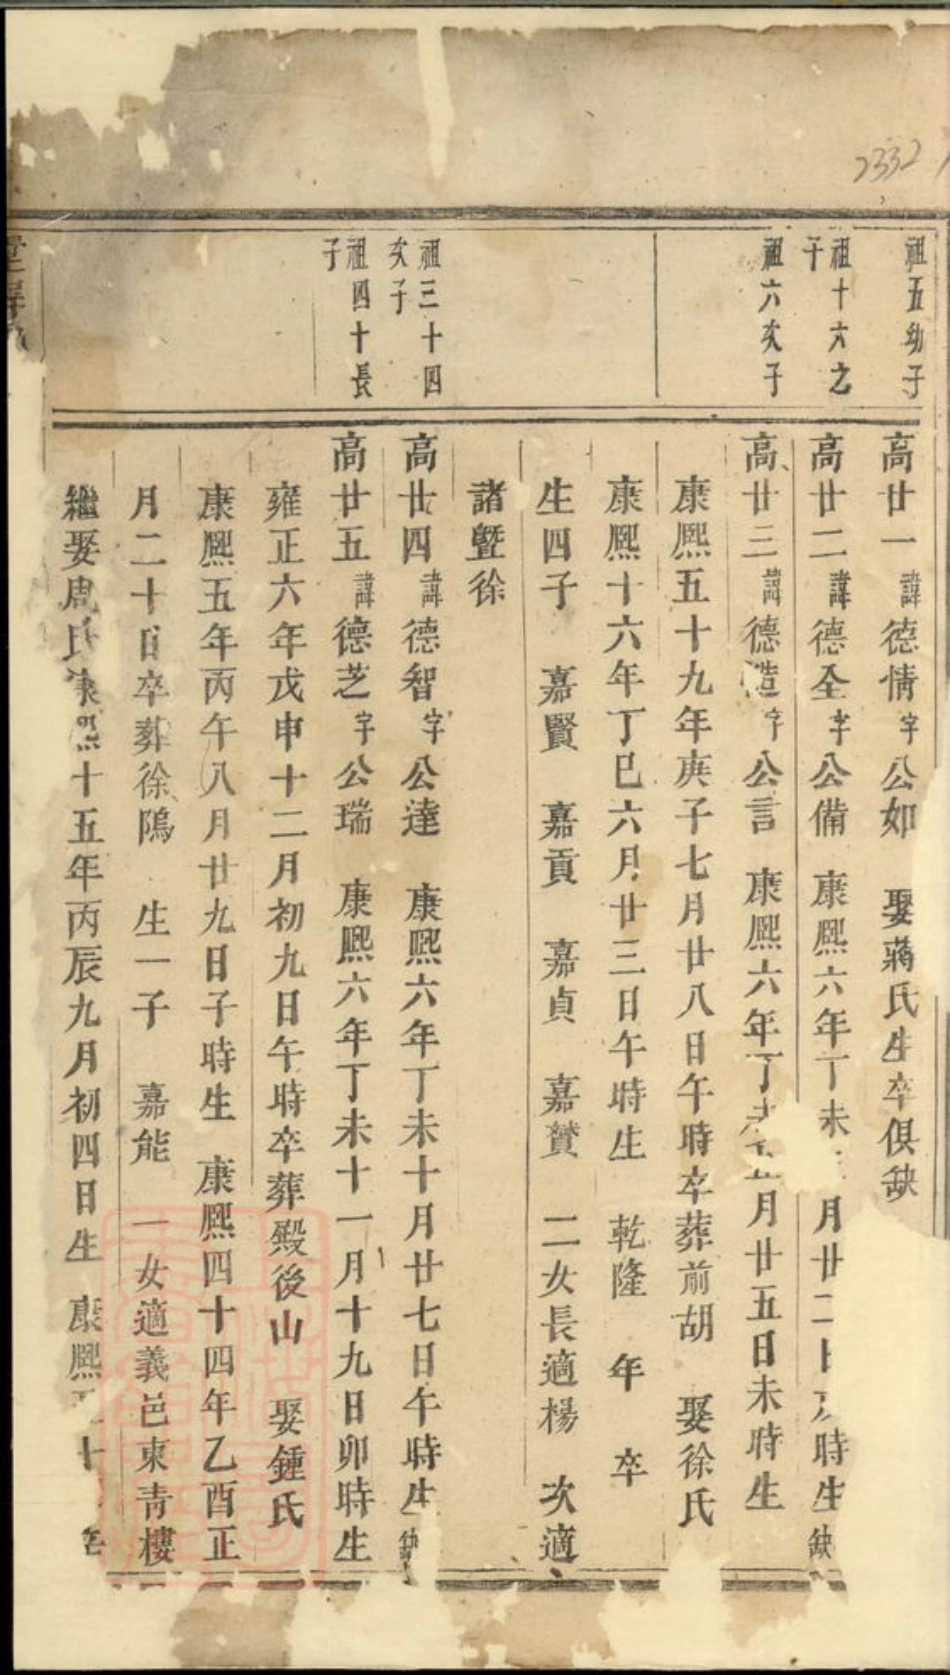 2332
祖五幼子
祖十六之
子
祖六次子
祖三十四
次子
祖四十長
子
高廿一諱德情字公如 娶蔣氏生卒俱缺
高廿二諱德全字公備 康熙六年丁未 月廿二日 時生缺
高廿三諱德造字公言 康熙六年丁未 月廿五日未時生
康熙五十九年庚子七月廿八日午時卒葬前胡 娶徐氏
康熙十六年丁巳六月廿三日午時生 乾隆 年 卒
生四子 嘉賢 嘉貢 嘉貞 嘉贊 二女長適楊 次適
諸暨徐
高廿四諱德智字公達 康熙六年丁未十月廿七日午時生缺
高廿五諱德芝字公瑞 康熙六年丁未十一月十九日卯時生
雍正六年戊申十二月初九日午時卒葬殿後山 娶鍾氏
康熙五年丙午八月廿九日子時生 康熙四十四年乙酉正
月二十日卒葬徐隖 生一子 嘉能 一女適義邑東青樓
繼娶周氏康熙十五年丙辰九月初四日生 康熙 十